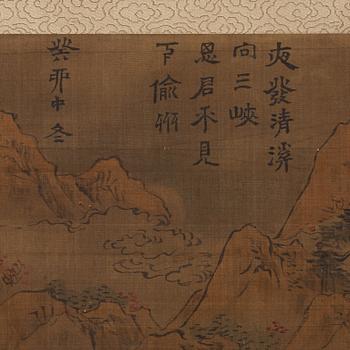 夜發清溪
向三峽
思君不見
下渝州
癸卯中冬